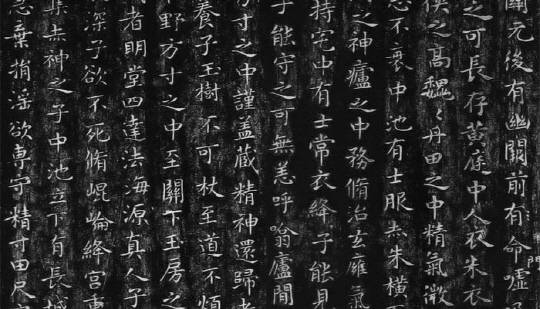 關元後有幽闕前有命門嘘
之可長存黃庭中人衣朱衣
俠之高魏〻丹田之中精氣微
志不衰中池有士服赤朱橫
之神廬之中務脩治玄廱氣
持宅中有士常衣絳子能見
子能守之可無恙呼噏廬間
方寸之中謹蓋藏精神還歸老
養子玉樹不可杖至道不煩
野方寸之中至關下玉房之
者明堂四達法海源真人子
深子欲不死脩崐崘絳宮重
集赤神之子中池立下有長城
棄捐淫欲專守精寸田尺宅